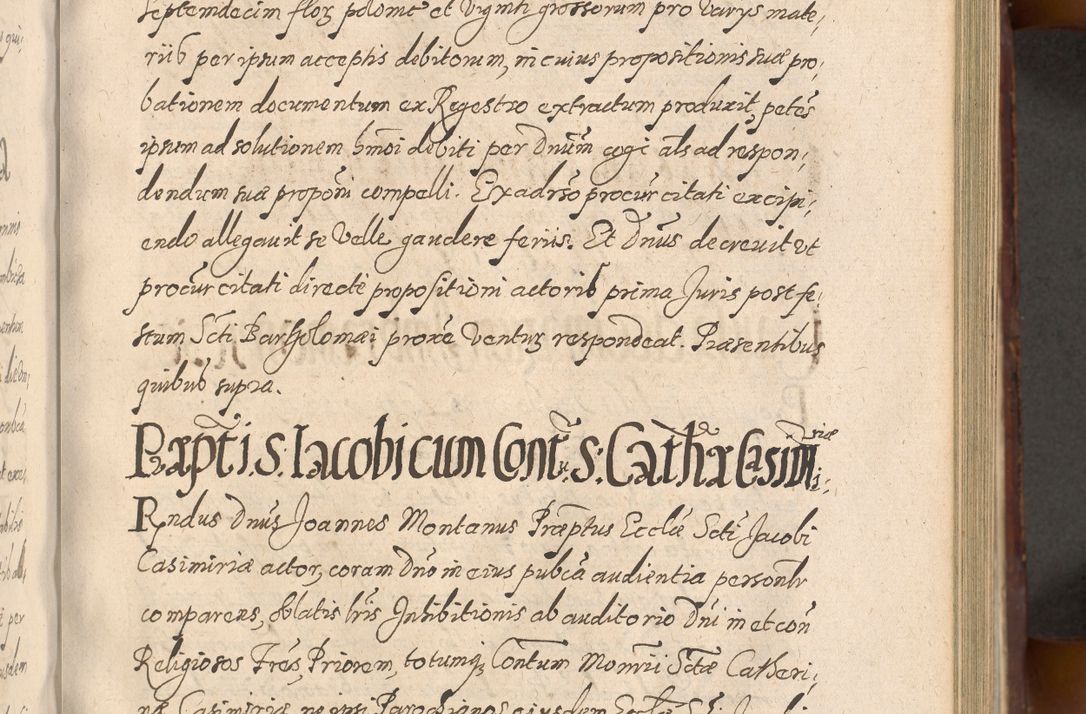 septemdecim flor̃ polonic̃ et viginti grossorum pro varys mate,
riis per ipsum acceptis debitorum, in cuius propositionis suæ pro,
bationem documentum ex Regestro extractum produxit, petẽs
ipsum ad solutionem hm̃oi debiti per Dnũm cogi als ad respon,
dendum suæ propõni compelli. Ex adrso procur citati excipi,
endo allegavit se velle gaudere feriis. Et Dnũs decrevit ut
procur citati directe propositioni actoris prima Juris post fe,
stum Scti Bartholomæi proxe ventur̃ respondeat. Præsentibus
quibus supra.
Præpti. S. Iacobi cum Cont̃. S. Cathæ Casimi,
riæ
Rndus Dnũs Joannes Montanus Præptus Ecclæ Scti Jacobi
Casimiriæ actor, coram Dño in eius pubca audientia personlr
comparens, oblatis lris Inhibitionis ab auditorio Dni in et con̄
Religiosos Fres, Priorem, totumq, Contum Monrii Sctæ Catheri,
næ Casimiriæ ne ipsi Parochianos eiusdem Ecclæ S. Jacobi